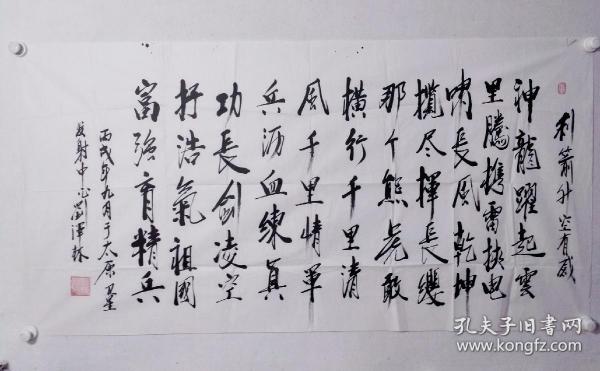 利箭升空有感
神龍躍起雲
里騰携雷挾电
啸長风乾坤
攬尽揮長纓
那个熊虎敢
横行千里清
風千里情軍
兵沥血練真
功長剑凌空
抒浩氣祖國
富强育精兵
丙戌年九月于太原卫星
发射中心
孔夫子旧书网
www.kongfz.com